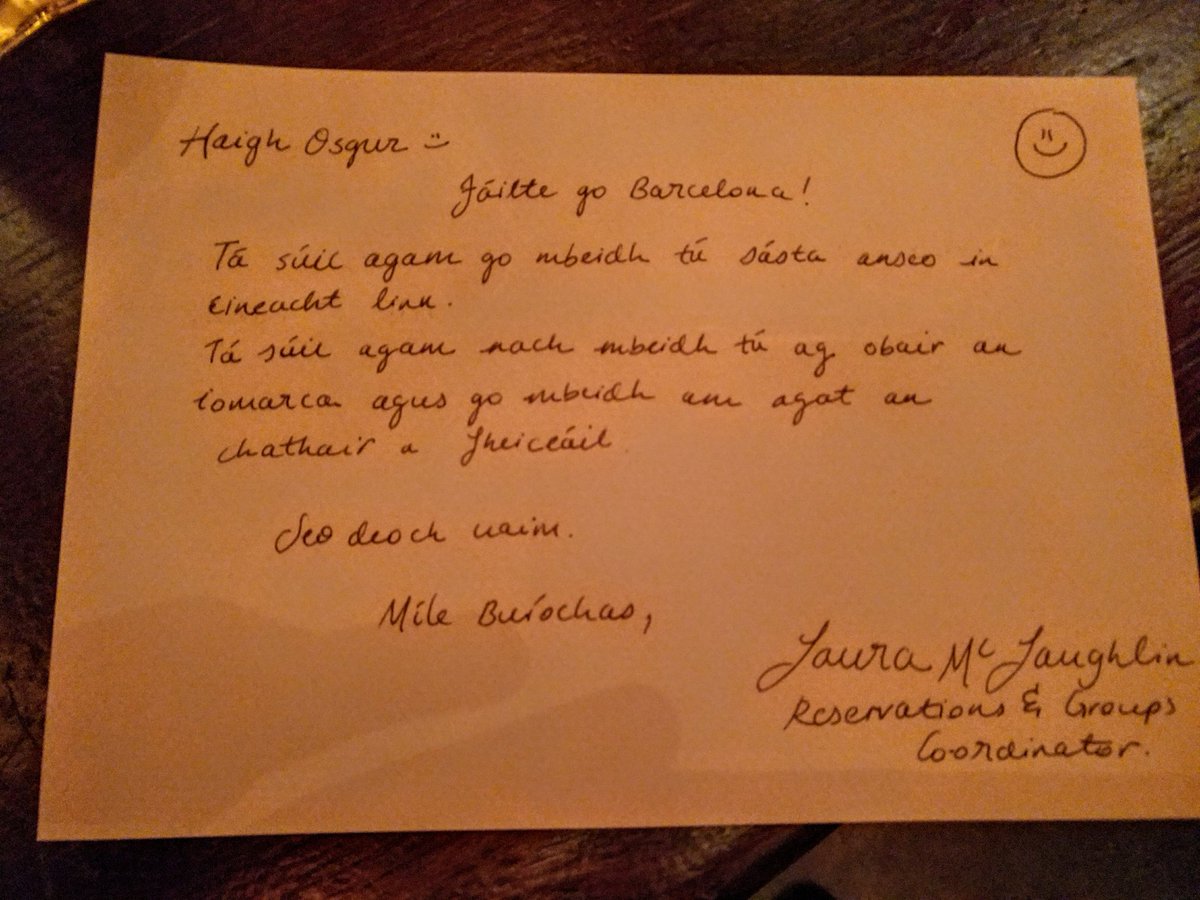 Haigh Osgur :)
Fáilte go Barcelona!
Tá súil agam go mbeidh tú sásta anseo in
éineacht linn.
Tá súil agam nach mbeidh tú ag obair an
iomarca agus go mbeidh am agat an
chathair a fheiceáil.
Seo deoch uaim.
Míle Buíochas,
Laura Mc Laughlin
Reservations & Groups
Coordinator.